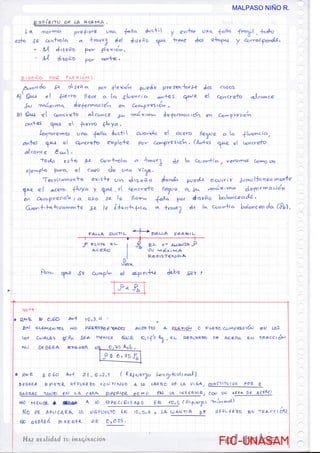 MALPASO NIÑO R.
ESPÍRITU DE LA NORMA.
La norma prefiere una falla dúctil y evitar una falla frágil, todo
esto se controla a través del diseño que tiene dos etapas y corresponde:
- Al diseño por flexión.
- Al diseño por corte.
DISEÑO POR FLEXIÓN:
Cuando se diseña por flexión puede presentarse dos casos
A) Que el fierro lleve a la fluencia antes que el concreto alcance
su máxima deformación en compresión.
B) Que el concreto alcance su máxima deformación en compresión
antes que el fierro fluya.
Lograremos una falla dúctil cuando el acero llegue a la fluencia,
antes que el concreto explote por compresión. (Antes que el concreto
alcance
Todo esto se controla a través de la cuantía, veremos como un
ejemplo para el caso de una viga.
Teóricamente existe un diseño donde puede ocurrir simultáneamente
que el acero fluya y que el concreto llegue a su máxima deformación
en compresión; a eso se le llama falla por diseño balanceado.
Cuantitativamente se le identifica a través de la cuantía balanceada (ρb).
FALLA DUCTIL
FALLA FRAGIL
FLUYE EL
ACERO
EL Cº ALCANZA
SU MÁXIMA
RESISTENCIA
Para que se cumpla el espíritu debe ser:
ρ < ρb
NOTA:
RNE E 0.60 Art 10.3.4
EN ELEMENTOS NO PREESFORZADOS SUJETOS A FLEXIÓN O FLEXOCOMPRESIÓN EN LOS
ρ ≤ 0.75 ρb
RNE E 0.60 Art 21.5.2.1 (Refuerzo Longitudinal)
DEBERÁ EXISTIR REFUERZO CONTINUO A LO LARGO DE LA VIGA, CONSTITUIDO POR 2
BARRAS TANTO EN LA CARA SUPERIOR COMO EN LA INFERIOR, CON UN ÁREA DE ACERO
NO MENOR A LO ESPECIFICADO EN 10.5 (Refuerzo mínimo)
NO DEBERÁ EXCEDER DE 0,025.
Haz realidad tu imaginación
FIC-UNASAM